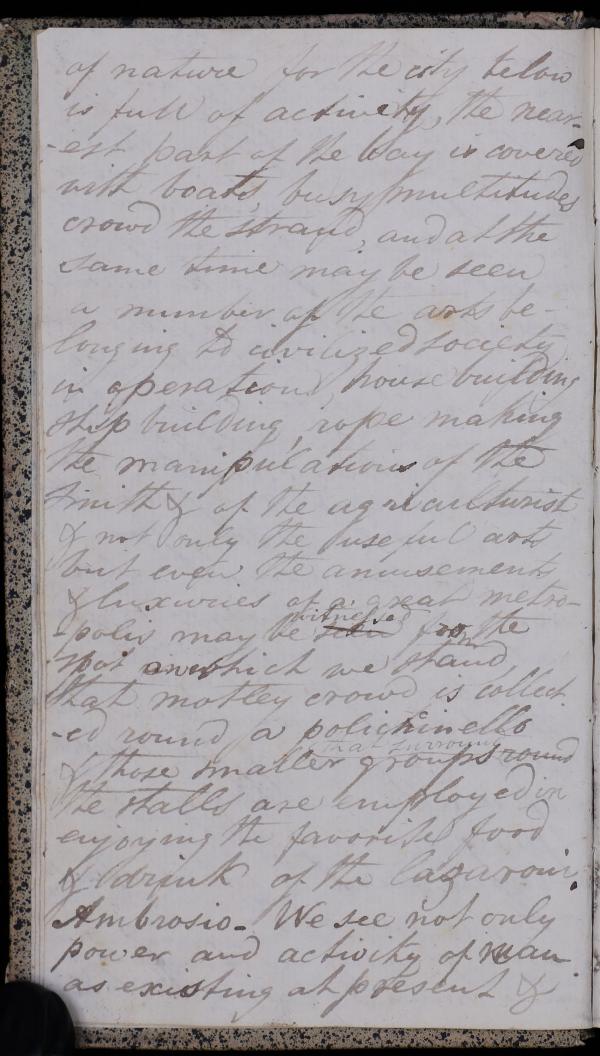 of nature for the city below
is full of activity, the near-
-est part of the bay is covered
with boats, busy multitudes
crowd the strand, and at the
same time may be seen
a number of the arts be-
longing to civilized society
in operation, house building
ship building, rope making
the manipulations of the
smith & of the agriculturist
& not only the useful arts
but even the amusements
& luxuries of a great metro-
-polis may be seen witnessed from the
spot on which we stand,
that motley crowd is collect
-ed round a polichinello
& those smaller groups that surround round
the stalls are employed in
enjoying the favorite food
& drink of the lazaroni.
Ambrosio - We see not only
power and activity of man
as existing at present &